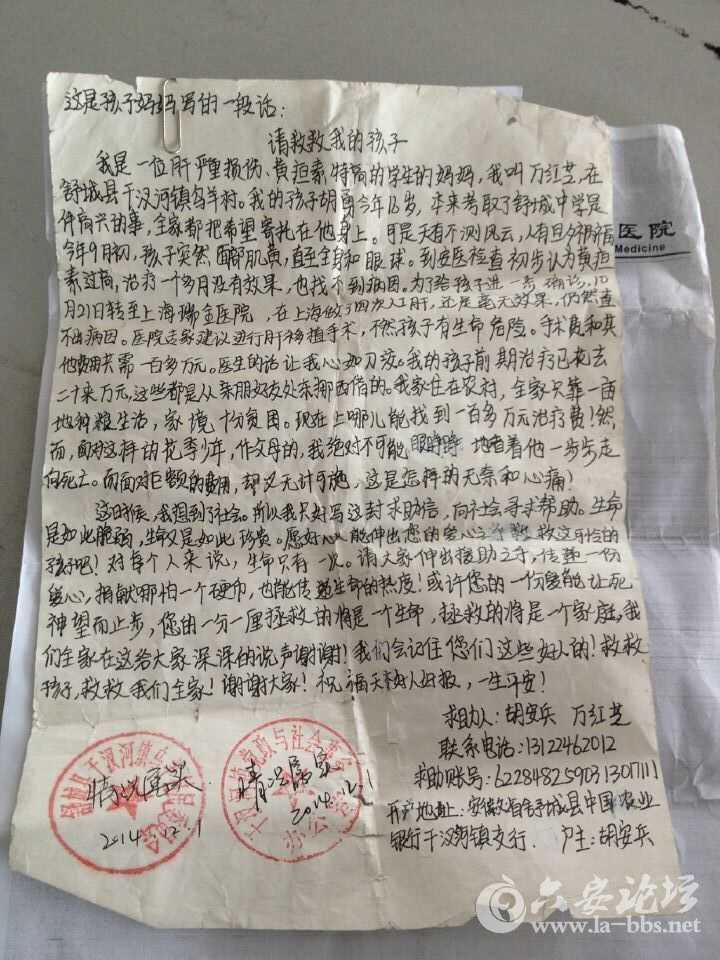 这是孩子妈妈写的一段话：
请救救我的孩子
我是一位肝严重损伤、黄疸素特高的学生的妈妈，我叫万红芝，在
舒城县干汊河镇乌羊村。我的孩子胡勇今年16岁，本来考取了舒城中学是
件高兴的事，全家都把希望寄托在他身上。可是天有不测风云，人有旦夕祸福
今年9月初，孩子突然面部肌黄，直至全身和眼球。到安医检查初步认为黄疸
素过高，治疗一个多月没有效果，也找不到病因。为了给孩子进一步确诊，10
月21日转至上海瑞金医院，在上海做了四次人工肝，还是毫无效果，仍然查
不出病因。医院专家建议进行肝移植手术，不然孩子有生命危险。手术费和其
他费用共需一百多万元。医生的话让我心如刀绞。我的孩子前期治疗已花去
二十来万元，这些都是从亲朋好友处东挪西借的。我家住在农村，全家只靠一亩
地种粮生活，家境十分贫困。现在上哪儿能找到一百多万元治疗费！然
而，面对这样的花季少年，作父母的，我绝对不可能眼睁睁地看着他一步步走
向死亡。而面对巨额的费用，却又无计可施，这是怎样的无奈和心痛！
这时候，我想到了社会。所以我只好写这封求助信，向社会寻求帮助。生命
是如此脆弱，生命又是如此珍贵。愿好心人能伸出您的爱心之手救救这可怜的
孩子吧！对每个人来说，生命只有一次。请大家伸出援助之手，传递一份
爱心，捐献哪怕一个硬币，也能传递生命的热度！或许您的一份爱能让死
神望而止步，您的一分一厘拯救的将是一个生命，拯救的将是一个家庭，我
们全家在这给大家深深的说声谢谢！我们会记住您们这些好人的！救救
孩子，救救我们全家！谢谢大家！祝福天下好人好报，一生平安！
求助人：胡安兵 万红芝
联系电话：13122462012
求助账号：6228482590313017111
开户地址：安徽省舒城县中国农业
银行干汊河镇支行. 户主：胡安兵
情况属实.
2014.12.1
情况属实
2014.12.1
医院
Medicine
六安论坛
www.la-bbs.net